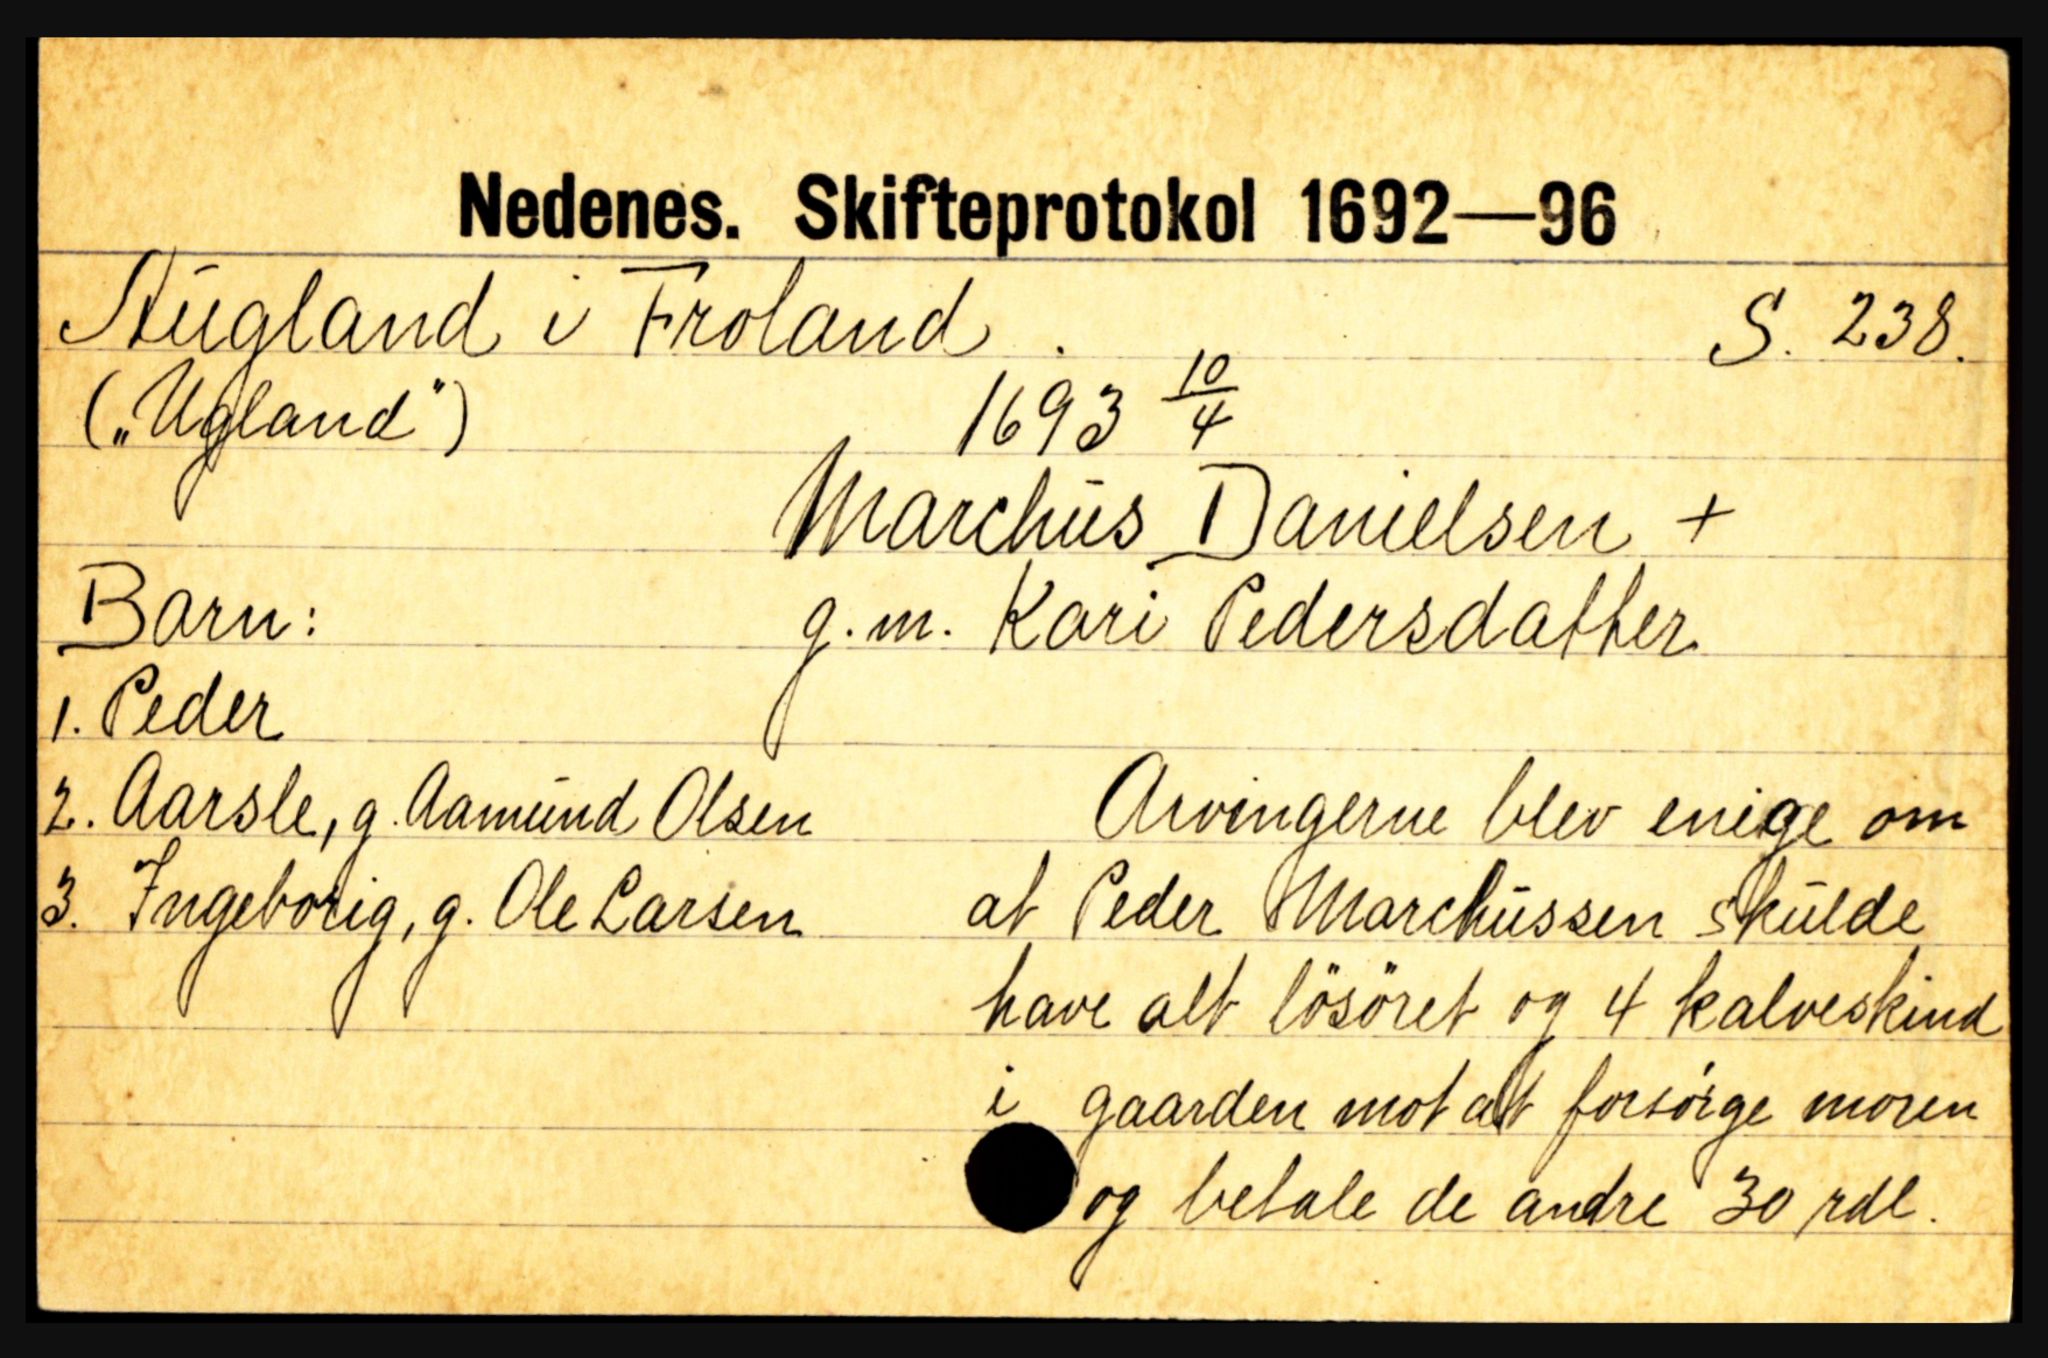 Nedenes. Skifteprotokol 1692—96
Augland i Froland. S. 238.
("Ugland") 1693 10/4
Marchus Danielsen +
Barn: g.m. Kari Pedersdatter
1. Peder
2. Aarsle, g. Aamund Olsen
3. Ingeborig, g. Ole Larsen
Arvingerne blev enige om
at Peder Marchussen skulde
have alt lösöret og 4 kalveskind
i gaarden mot at forsörge moren
og betale de andre 30 rdl.